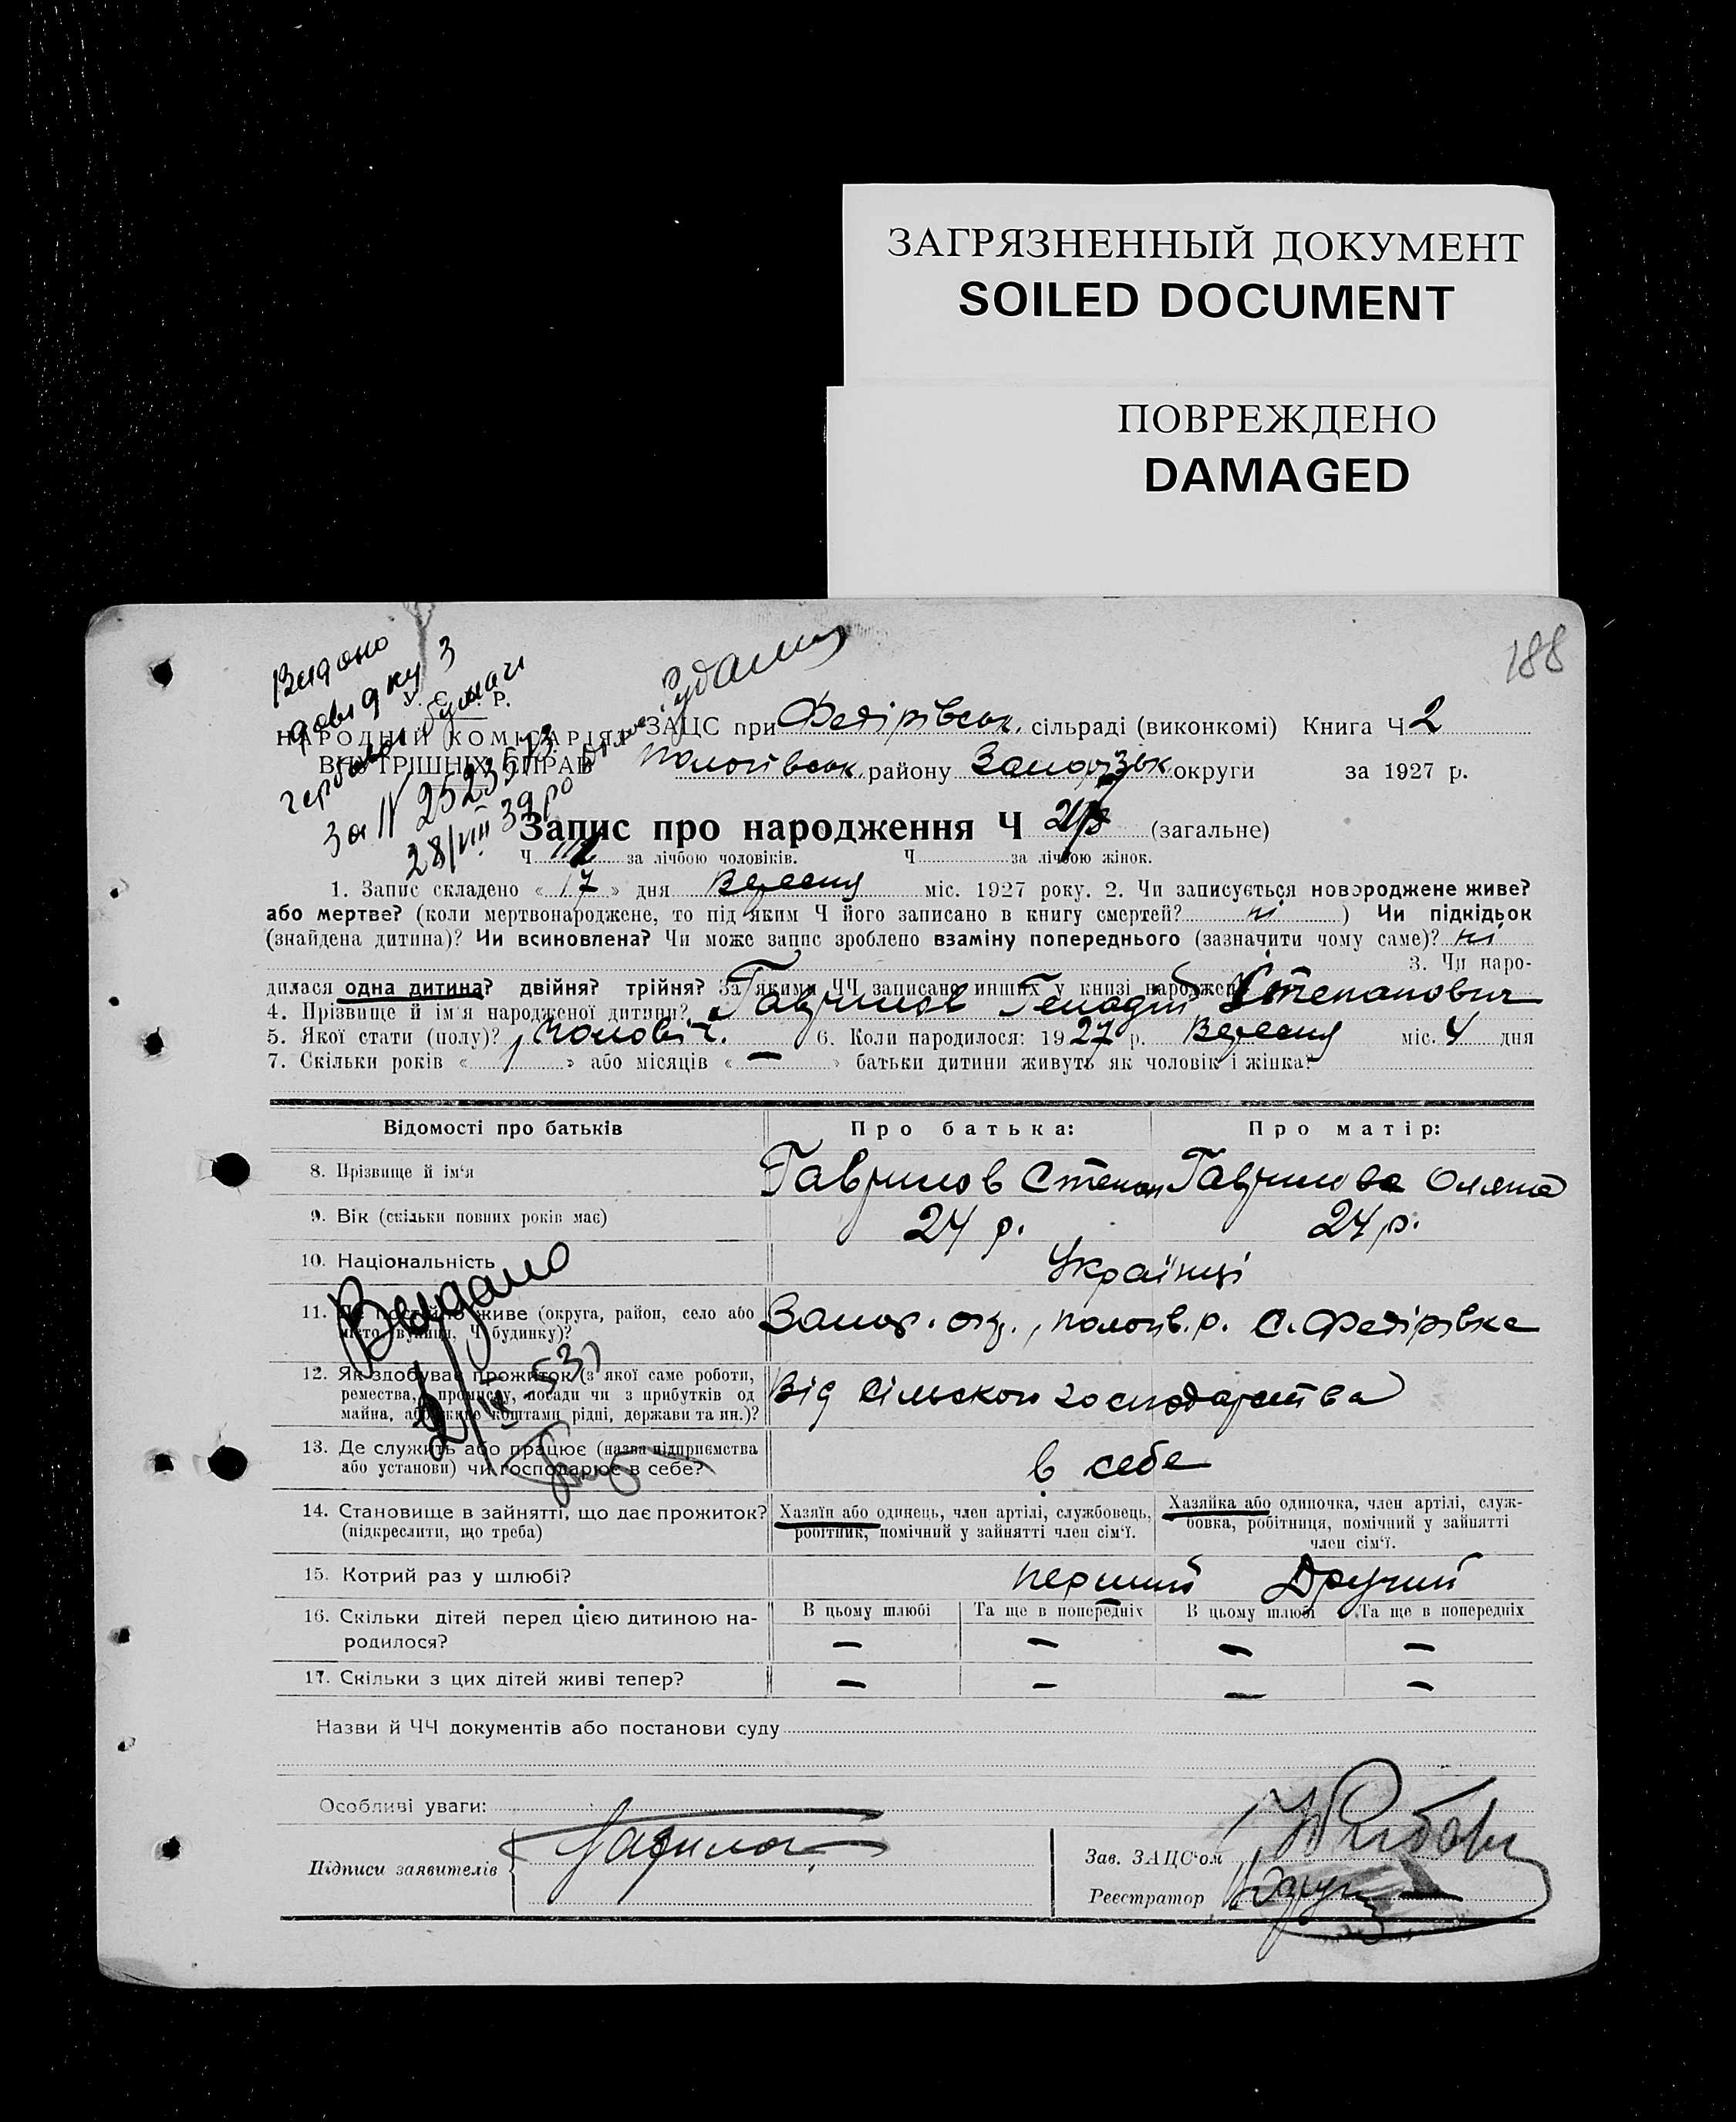 ЗАГРЯЗНЕННЫЙ ДОКУМЕНТ
SOILED DOCUMENT
ПОВРЕЖДЕНО
DAMAGED
188
Видано
довідку з
гербової бумаги
За №
28/VIII 39
У. С. Р. Р.
НАРОДНІЙ КОМІСАРІЯТ
ВНУТРІШНІХ СПРАВ
ЗАЦС при Федірівськ. сільраді (виконкомі) Книга Ч 2
Пологівськ. району Запорізьк округи за 1927 р.
Запис про народження Ч (загальне)
Ч за лічбою чоловіків. Ч за лічбою жінок.
1. Запис складено « 17 » дня Вересня міс. 1927 року. 2. Чи записується новороджене живе?
або мертве? (коли мертвонароджене, то під яким Ч його записано в книгу смертей? ні ) Чи підкідьок
(знайдена дитина)? Чи всиновлена? Чи може запис зроблено взаміну попереднього (зазначити чому саме)? ні
3. Чи наро-
дилася одна дитина? двійня? трійня? За якими ЧЧ записано инших у книзі народжень
4. Прізвище й ім'я народженої дитини? Гаврилов Генадій Степанович
5. Якої стати (полу)? Чоловіч. 6. Коли народилося: 1927 р. Вересня міс. 4 дня
7. Скільки років « 1 » або місяців « — » батьки дитини живуть як чоловік і жінка?
Відомості про батьків Про батька: Про матір:
8. Прізвище й ім'я Гаврилов Степан Гаврилова
9. Вік (скільки повних років має) 24 р. 24 р.
10. Національність Українці
Видано
11. Де постійно живе (округа, район, село або Запор. окр., Пологів. р. С. Федірівка
місто, вулиця, Ч будинку)?
12. Як здобуває прожиток (з якої саме роботи, Від сільского господарства
ремества, промислу, посади чи з прибутків од
майна, або живе коштами рідні, держави та ин.)?
13. Де служить або працює (назва підприємства в себе
або установи) чи господарює в себе?
14. Становище в зайнятті, що дає прожиток? Хазяїн або одинець, член артілі, службовець, Хазяйка або одиночка, член артілі, служ-
(підкреслити, що треба) робітник, помічний у зайнятті член сім'ї. бовка, робітниця, помічний у зайнятті
член сім'ї.
15. Котрий раз у шлюбі? перший Другий
16. Скільки дітей перед цією дитиною на- В цьому шлюбі Та ще в попередніх В цьому шлюбі Та ще в попередніх
родилося? — — — —
17. Скільки з цих дітей живі тепер? — — — —
Назви й ЧЧ документів або постанови суду
Особливі уваги:
Підписи заявителів
Зав. ЗАЦС'ом
Реєстратор